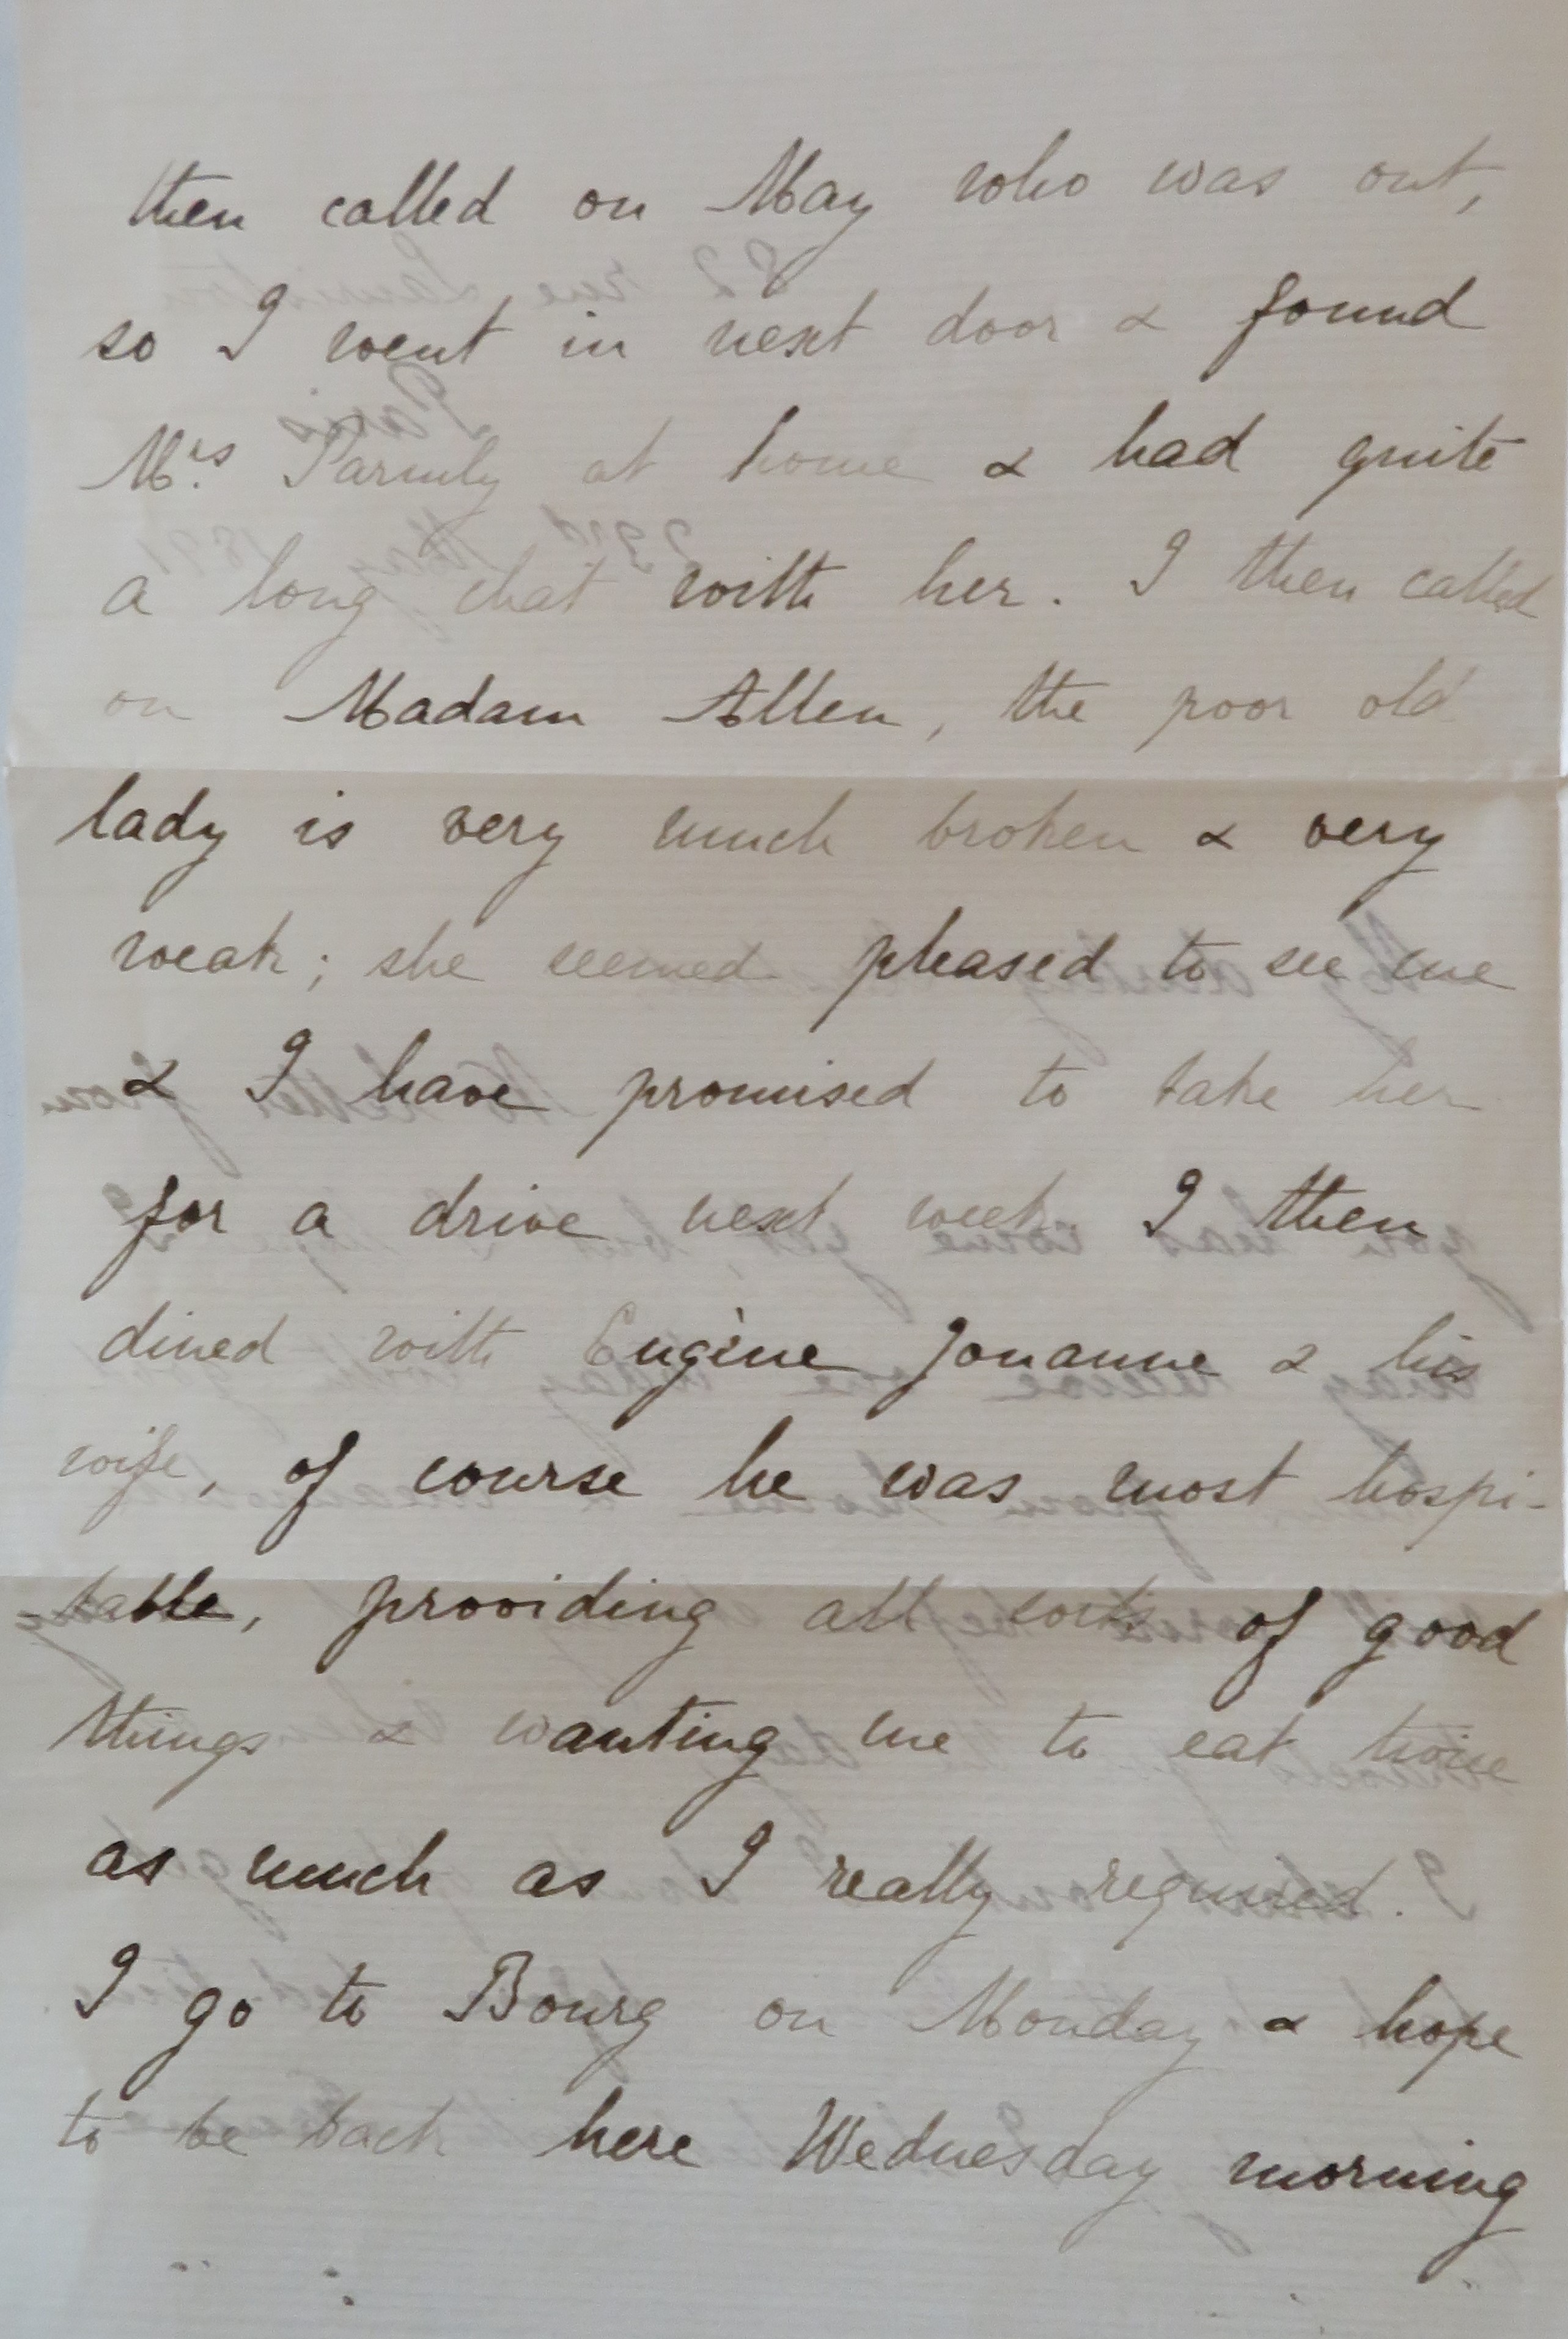 then called on May who was out,
so I went in next door & found
Mrs. Parmly at home & had quite
a long chat with her. I then called
on Madam Allen, the poor old
lady is very much broken & very
weak; she seemed pleased to see me
& I have promised to take her
for a drive next week. I then
dined with Eugène Jouanne & his
wife, of course he was most hospi-
-table, providing all sorts of good
things & wanting me to eat twice
as much as I really required.
I go to Bourg on Monday & hope
to be back here Wednesday morning